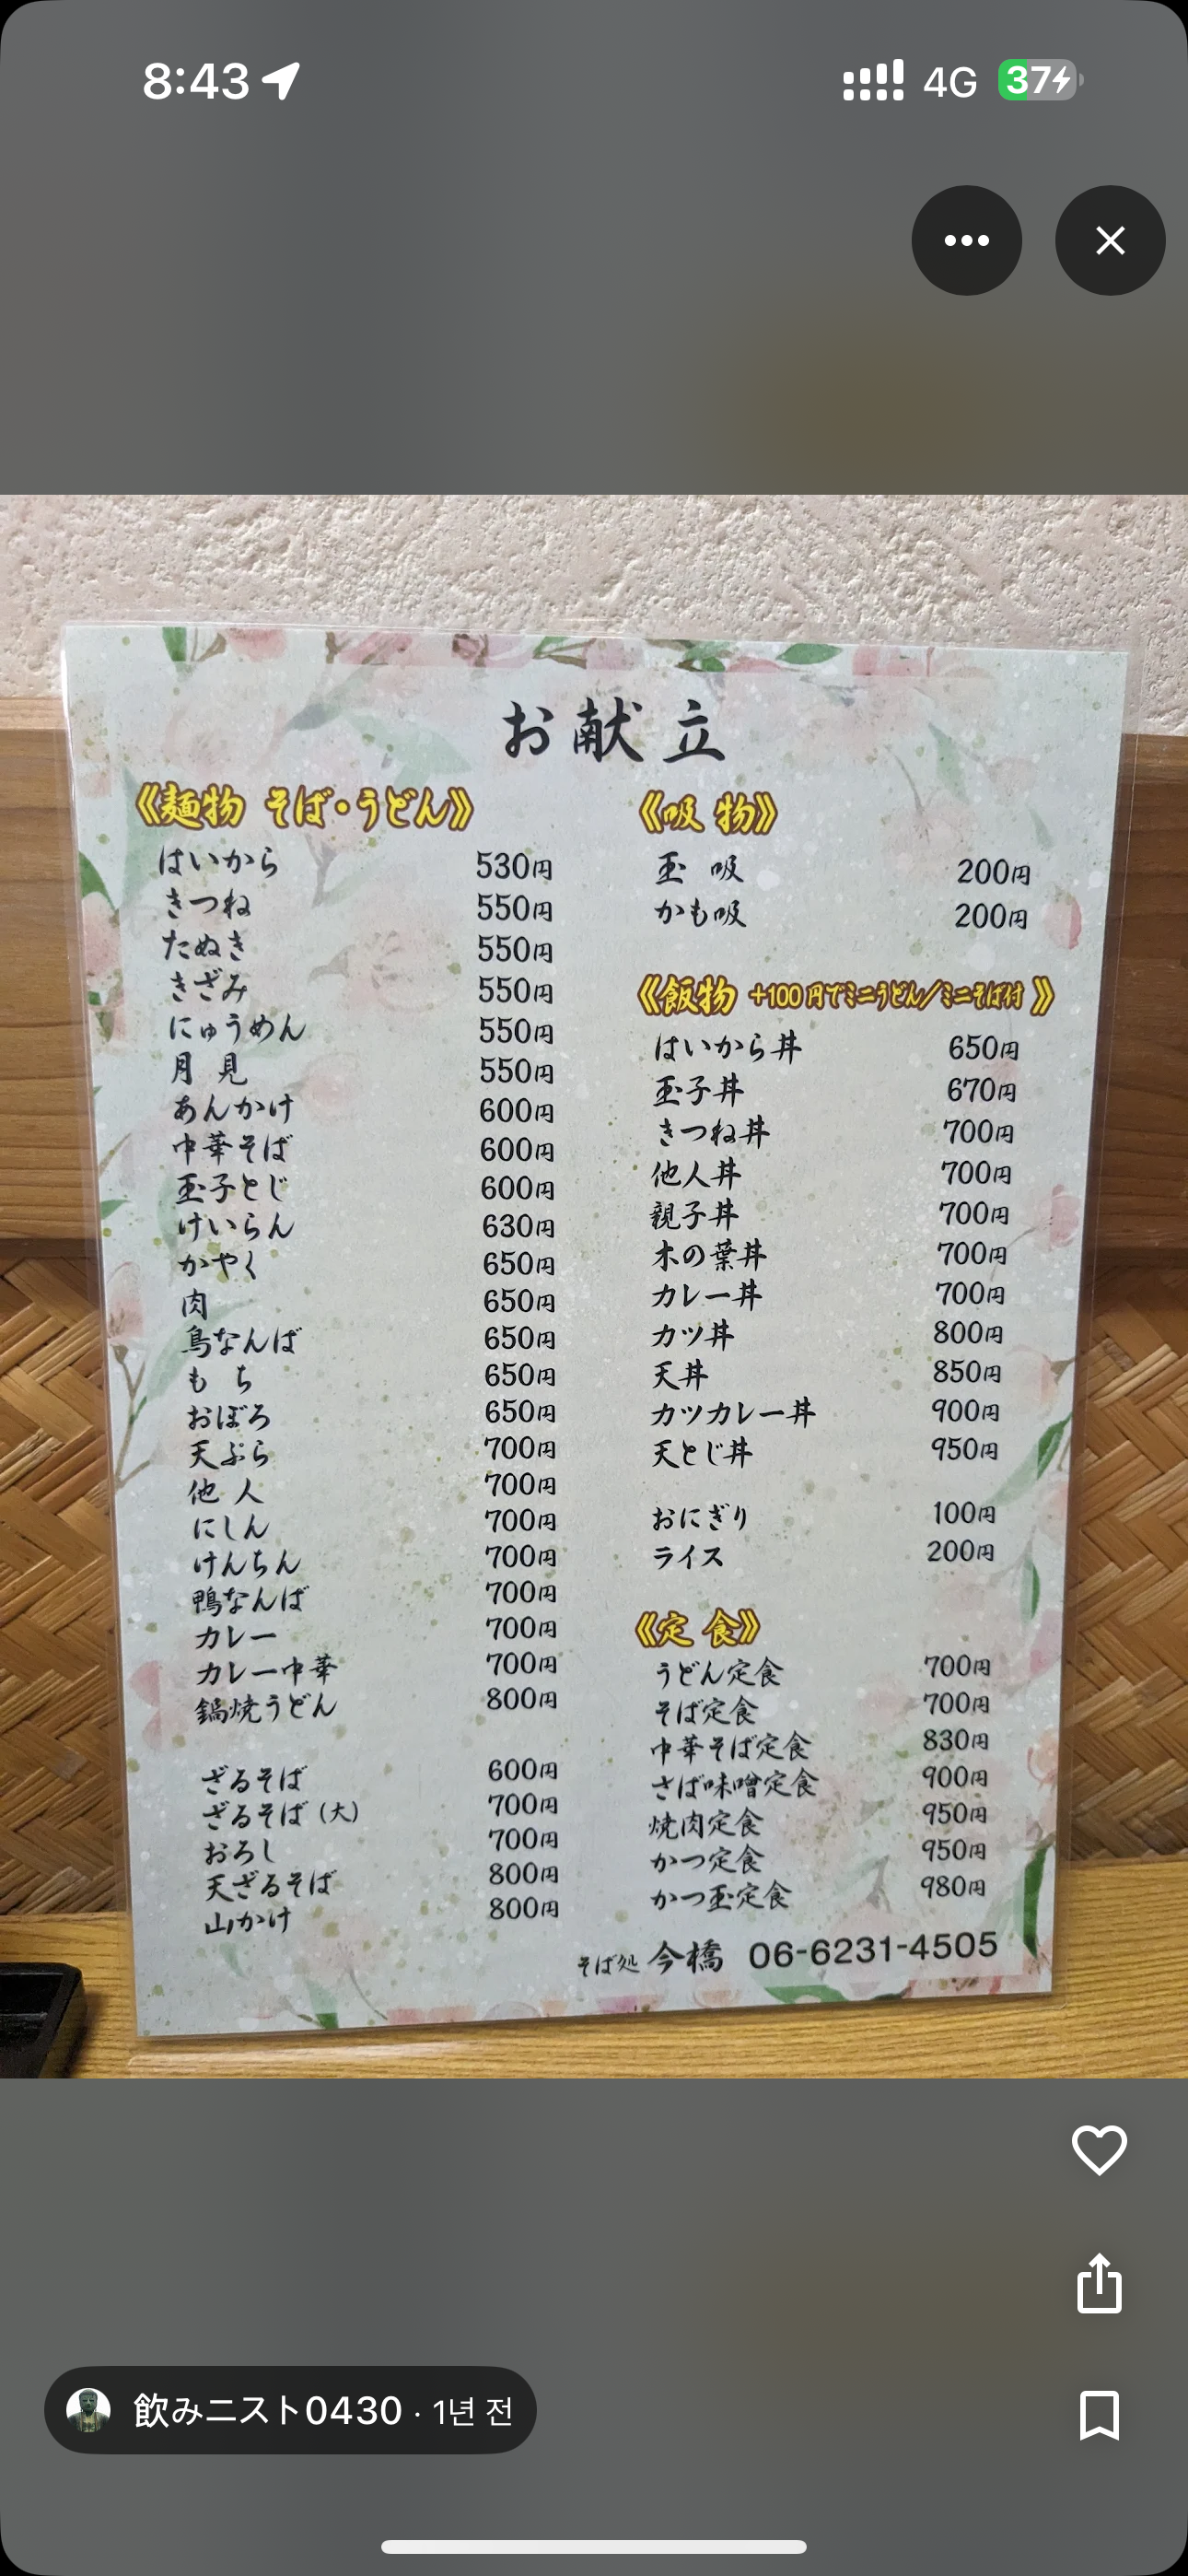 8:43
4G
37
お献立
《麺物 そば・うどん》
はいから 530円
きつね 550円
たぬき 550円
きざみ 550円
にゅうめん 550円
月 見 550円
あんかけ 600円
中華そば 600円
玉子とじ 600円
けいらん 630円
かやく 650円
肉 650円
鳥なんば 650円
も ち 650円
おぼろ 650円
天ぷら 700円
他 人 700円
にしん 700円
けんちん 700円
鴨なんば 700円
カレー 700円
カレー中華 700円
鍋焼うどん 800円
ざるそば 600円
ざるそば（大） 700円
おろし 700円
天ざるそば 800円
山かけ 800円
《吸 物》
玉 吸 200円
かも吸 200円
《飯物 +100円でミニうどん/ミニそば付》
はいから丼 650円
玉子丼 670円
きつね丼 700円
他人丼 700円
親子丼 700円
木の葉丼 700円
カレー丼 700円
カツ丼 800円
天丼 850円
カツカレー丼 900円
天とじ丼 950円
おにぎり 100円
ライス 200円
《定 食》
うどん定食 700円
そば定食 700円
中華そば定食 830円
さば味噌定食 900円
焼肉定食 950円
かつ定食 950円
かつ玉定食 980円
そば処 今橋 06-6231-4505
飲みニスト0430 · 1년 전